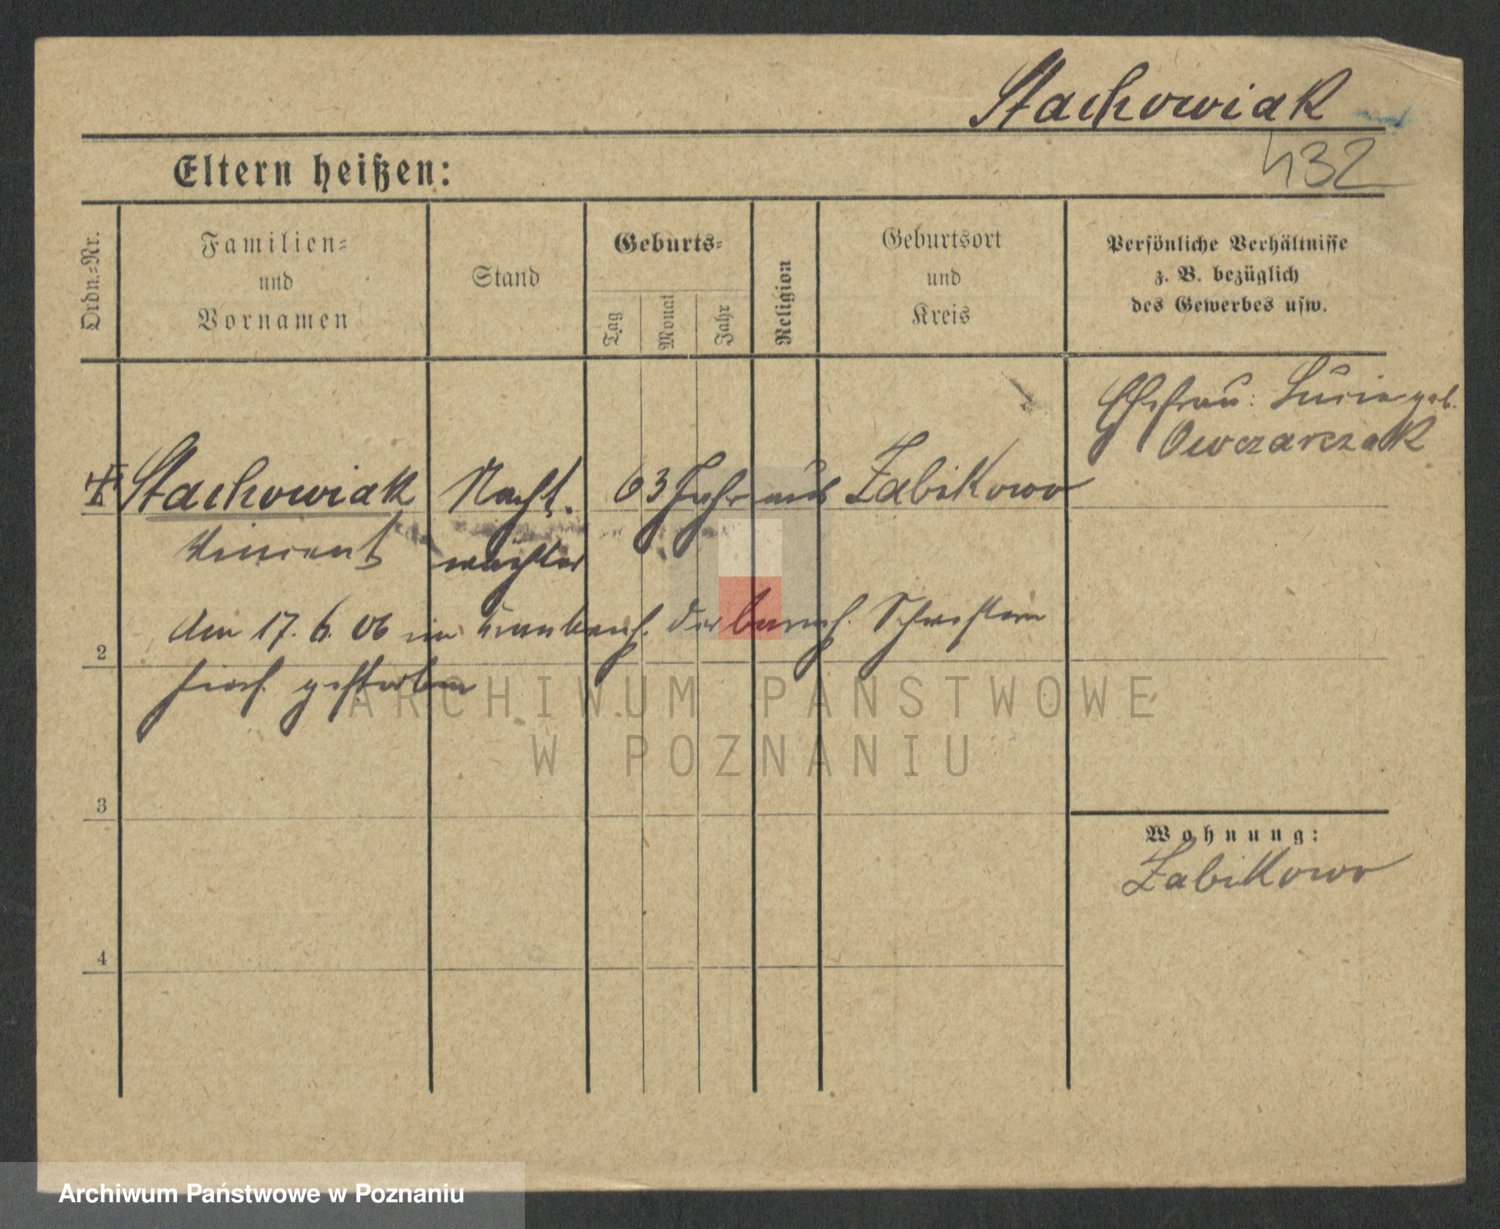 Stachowiak
432
Eltern heißen:
Ordn.=Nr.
Familien=
und
Vornamen
Stand
Geburts=
Tag
Monat
Jahr
Religion
Geburtsort
und
Kreis
Persönliche Verhältnisse
z. B. bezüglich
des Gewerbes usw.
Ehefrau: Lucie geb.
Owczarczak
Stachowiak Nacht- 63 Jahr aus Zabikowo
Vincent wächter
den 17. 6. 06 im Krankenh. der barmh. Schwestern
hierh. gestorben
2
3
4
Wohnung:
Zabikowo
ARCHIWUM PAŃSTWOWE
W POZNANIU
Archiwum Państwowe w Poznaniu